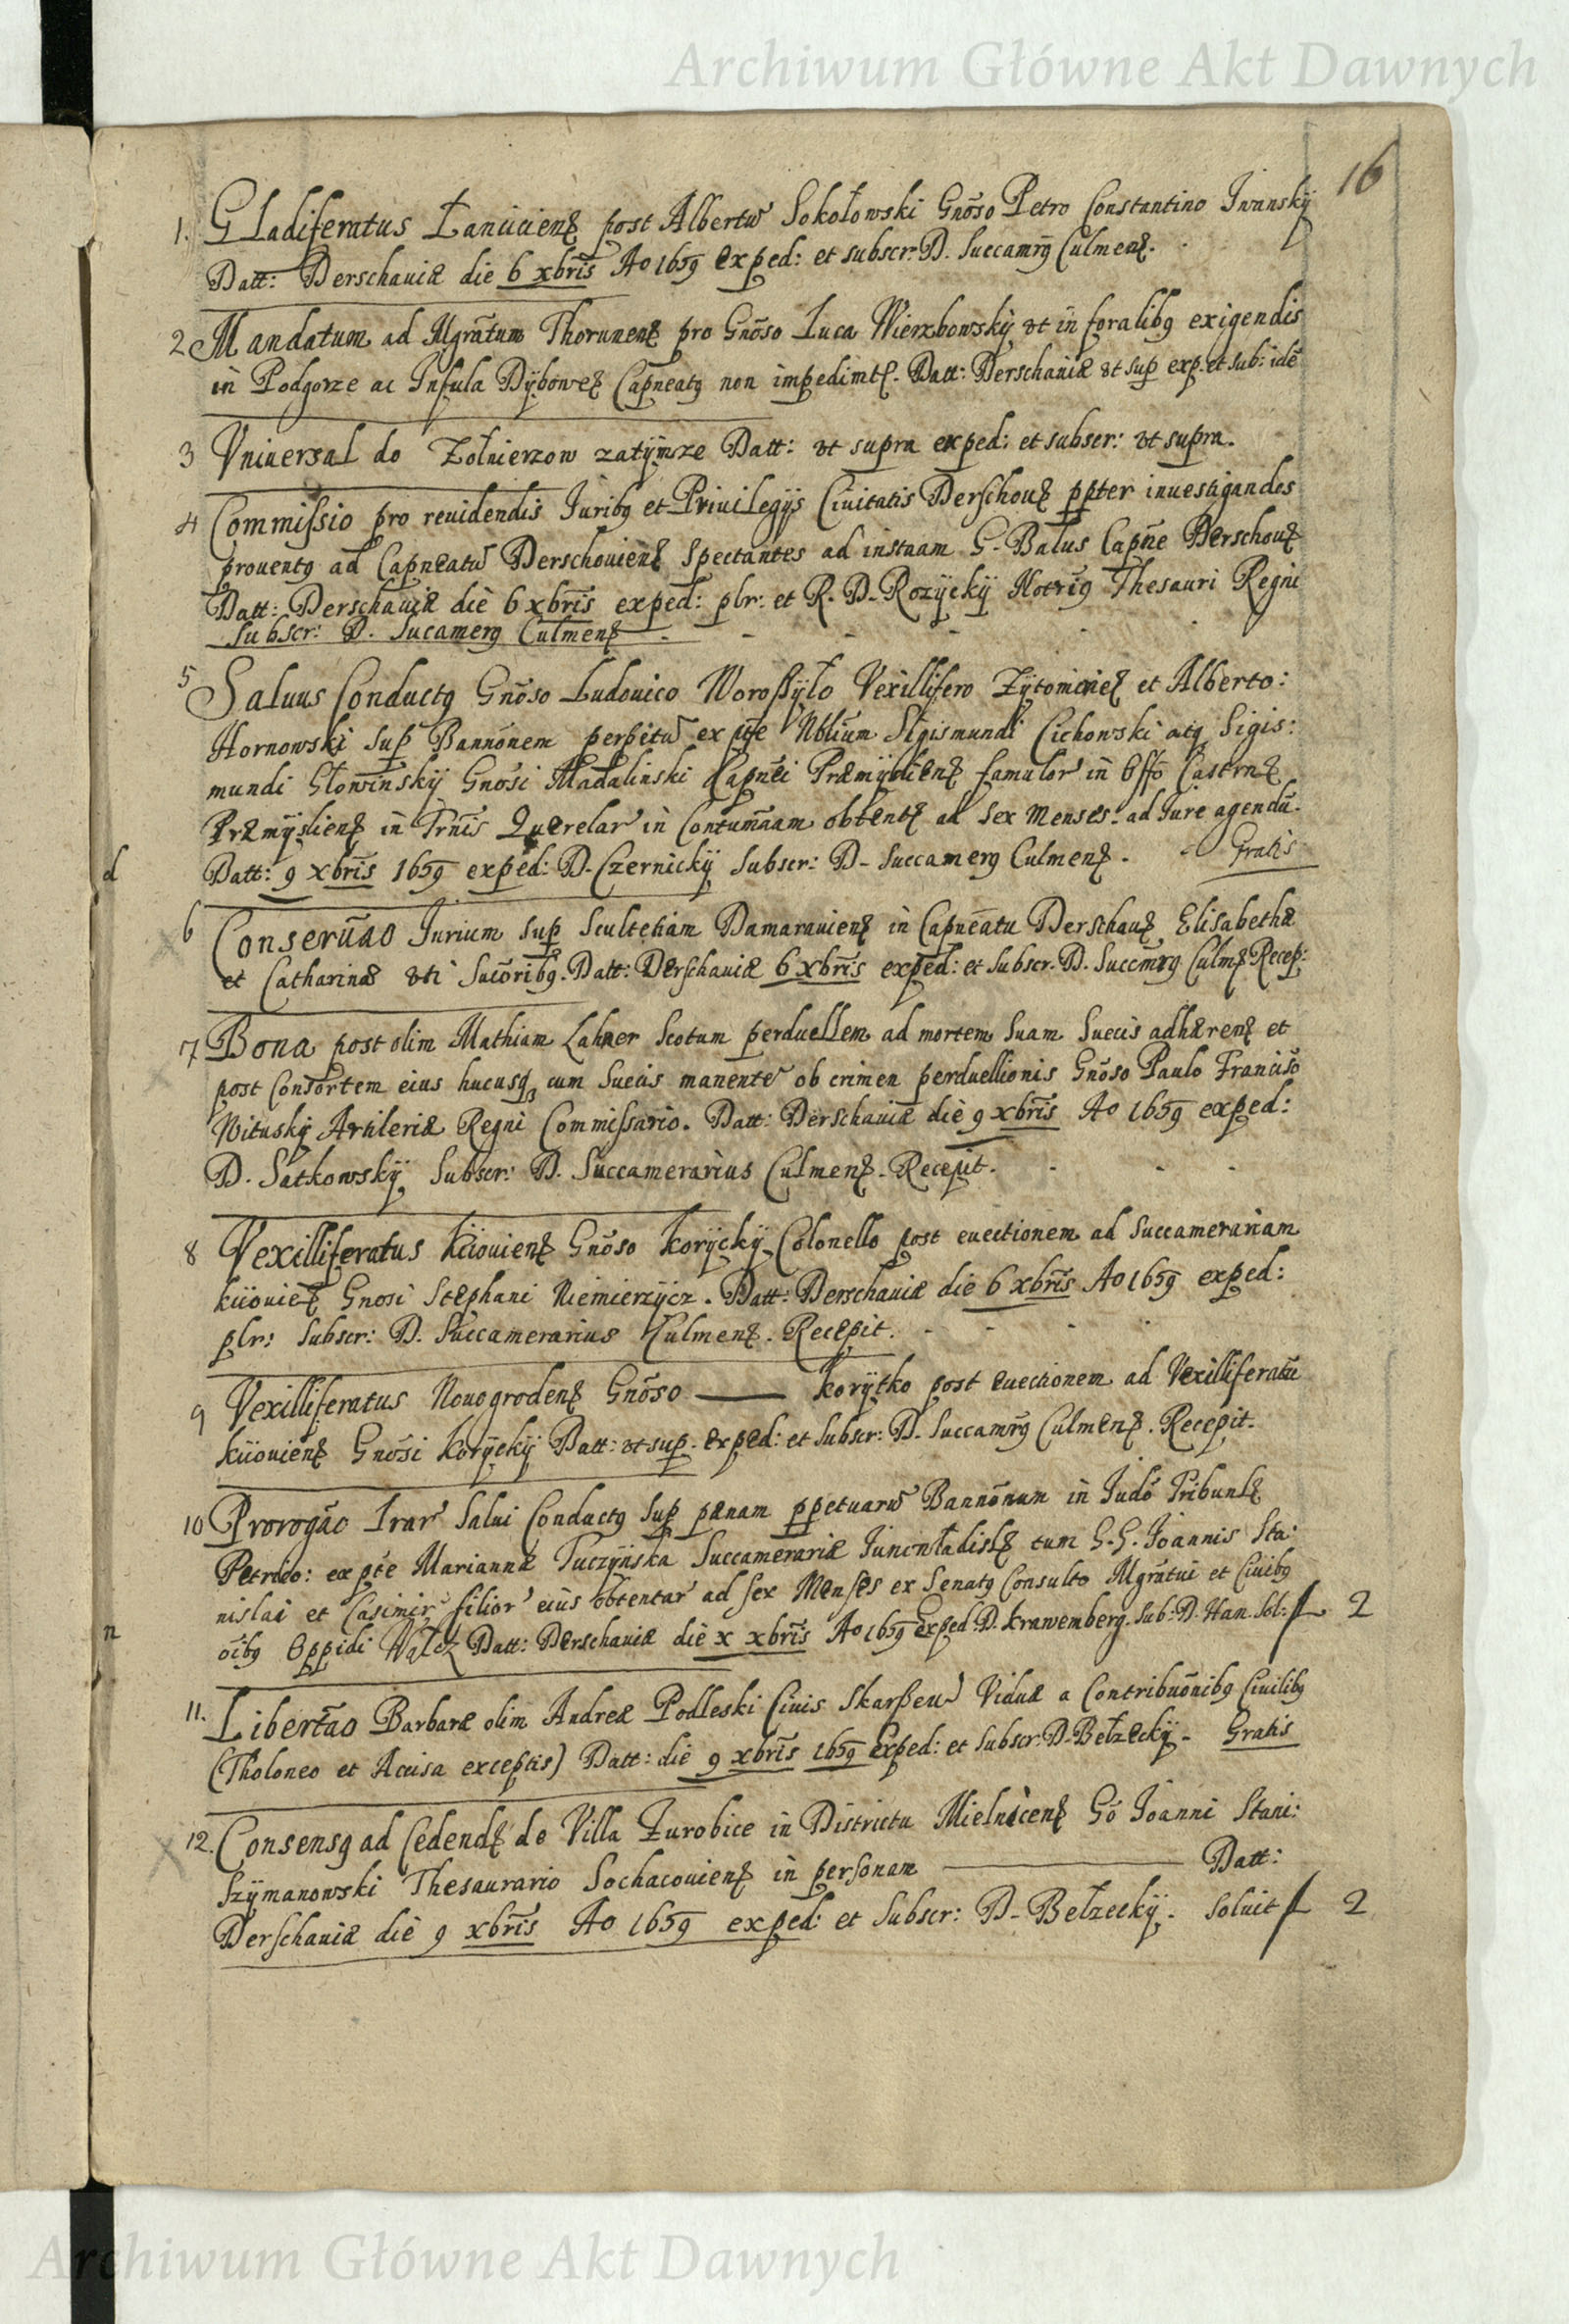 Archiwum Główne Akt Dawnych
16
1. Gladiferatus Łanciciens post Albertũ Sokołowski Gnõso Petro Constantino Iwanskÿ
Datt: Derschauiæ die 6 xbris Ao 1659 exped: et subscr: D. Succamrg Culmens.
2 Mandatum ad Mgrãtum Thorunens pro Gnõso Luca Wierzbowskÿ vt in foralibg exigendis
in Podgorze ac Insula Dÿbowes Capneatg non impedimts. Datt: Derschauiæ vt sup exp. et sub: idẽ
3 Vniuersal do Zołnierzow zatÿmze Datt: vt supra exped: et subscr: vt supra.
4 Commissio pro reuidendis Iuribg et Priuilegÿs Ciuitatis Derschous ppter inuestigandos
prouentg ad Capneatũ Derschouiens Spectantes ad instnam G. Balus Capñe Derschous
Datt: Derschauiæ die 6 xbris exped: plr: et R. D. Rozÿckÿ Notrig Thesauri Regni
Subscr: D. Sucamerg Culmens
5 Saluus Conductg Gnõso Ludouico Woroszÿło Vexillifero Zÿtomiries et Alberto:
Hornowski sup Bannõnem perpetuã ex pte Nblium Sigismundi Cichowski atq Sigis:
mundi Słowinskÿ Gnõsi Madalinski Capnei Præmÿsliens famulor in Offõ Castrns
Præmÿsliens in Trnis Querelar in Contumãam obtents ad sex Menses. ad Iure agendũ.
d Datt: 9 xbris 1659 exped: D. Czernickÿ Subscr: D. Succamerg Culmens. Gratis
6 Conseruão Iurium sup Scultetiam Damarauiens in Capneatu Derschaus Elisabethæ
et Catharinæ vti Sucõribg. Datt: Derschauiæ 6 xbris exped: et subscr. D. Succmrg Culms Recep:
7 Bona post olim Mathiam Lahner Scotum perduellem ad mortem suam Suecis adhærens et
post Consortem eius hucusq cum Suecis manentẽ ob crimen perduellionis Gnõso Paulo Francisõ
Wituskÿ Artileriæ Regni Commissario. Datt: Derschauiæ die 9 xbris Ao 1659 exped:
D. Satkowskÿ Subscr: D. Succamerarius Culmens. Recepit.
8 Vexilliferatus Kiiouiens Gnõso Korÿckÿ Colonello post euectionem ad Succamerariam
kiiouies Gnosi Stephani Niemierzÿcz. Datt: Derschauiæ die 6 xbris Ao 1659 exped:
plr: Subscr: D. Succamerarius Culmens. Recepit.
9 Vexilliferatus Nouogrodens Gnõso ——— Korÿtko post euectionem ad Vexilliferatũ
kiiouiens Gnõsi Korÿckÿ Datt: vt sup. exped: et subscr: D. Succamrg Culmens. Recepit.
10 Prorogão Lrar Salui Conductg sup pænam ppetuarũ Bannõnum in Iudõ Tribunls
Petrico: ex pte Mariannæ Tuczÿnska Succamerariæ Iuncutadisls tum G. G. Ioannis Sta:
nislai et Casimir filior eius obtentar ad sex Menses ex Senatg Consulto Mgrãtui et Ciuibg
n oibg Oppidi Wałcz Datt: Derschauiæ die x xbris Ao 1659 Exped D. krawemberg. Sub: D. Han. Sol: f 2
11. Libertão Barbaræ olim Andreæ Podleski Ciuis Skarszeu Viduæ a Contribuõnibg Ciuilibg
(Tholoneo et Acuisa exceptis) Datt: die 9 xbris 1659 Exped: et subscr: D. Bełzeckÿ. Gratis
12. Consensg ad Cedends de Villa Zurobice in Districtu Mielnicens Gõ Ioanni Stani:
Szÿmanowski Thesaurario Sochacouiens in personam ——— Datt:
Derschauiæ die 9 xbris Ao 1659 exped: et subscr: D. Bełzeckÿ. Soluit f 2
Archiwum Główne Akt Dawnych